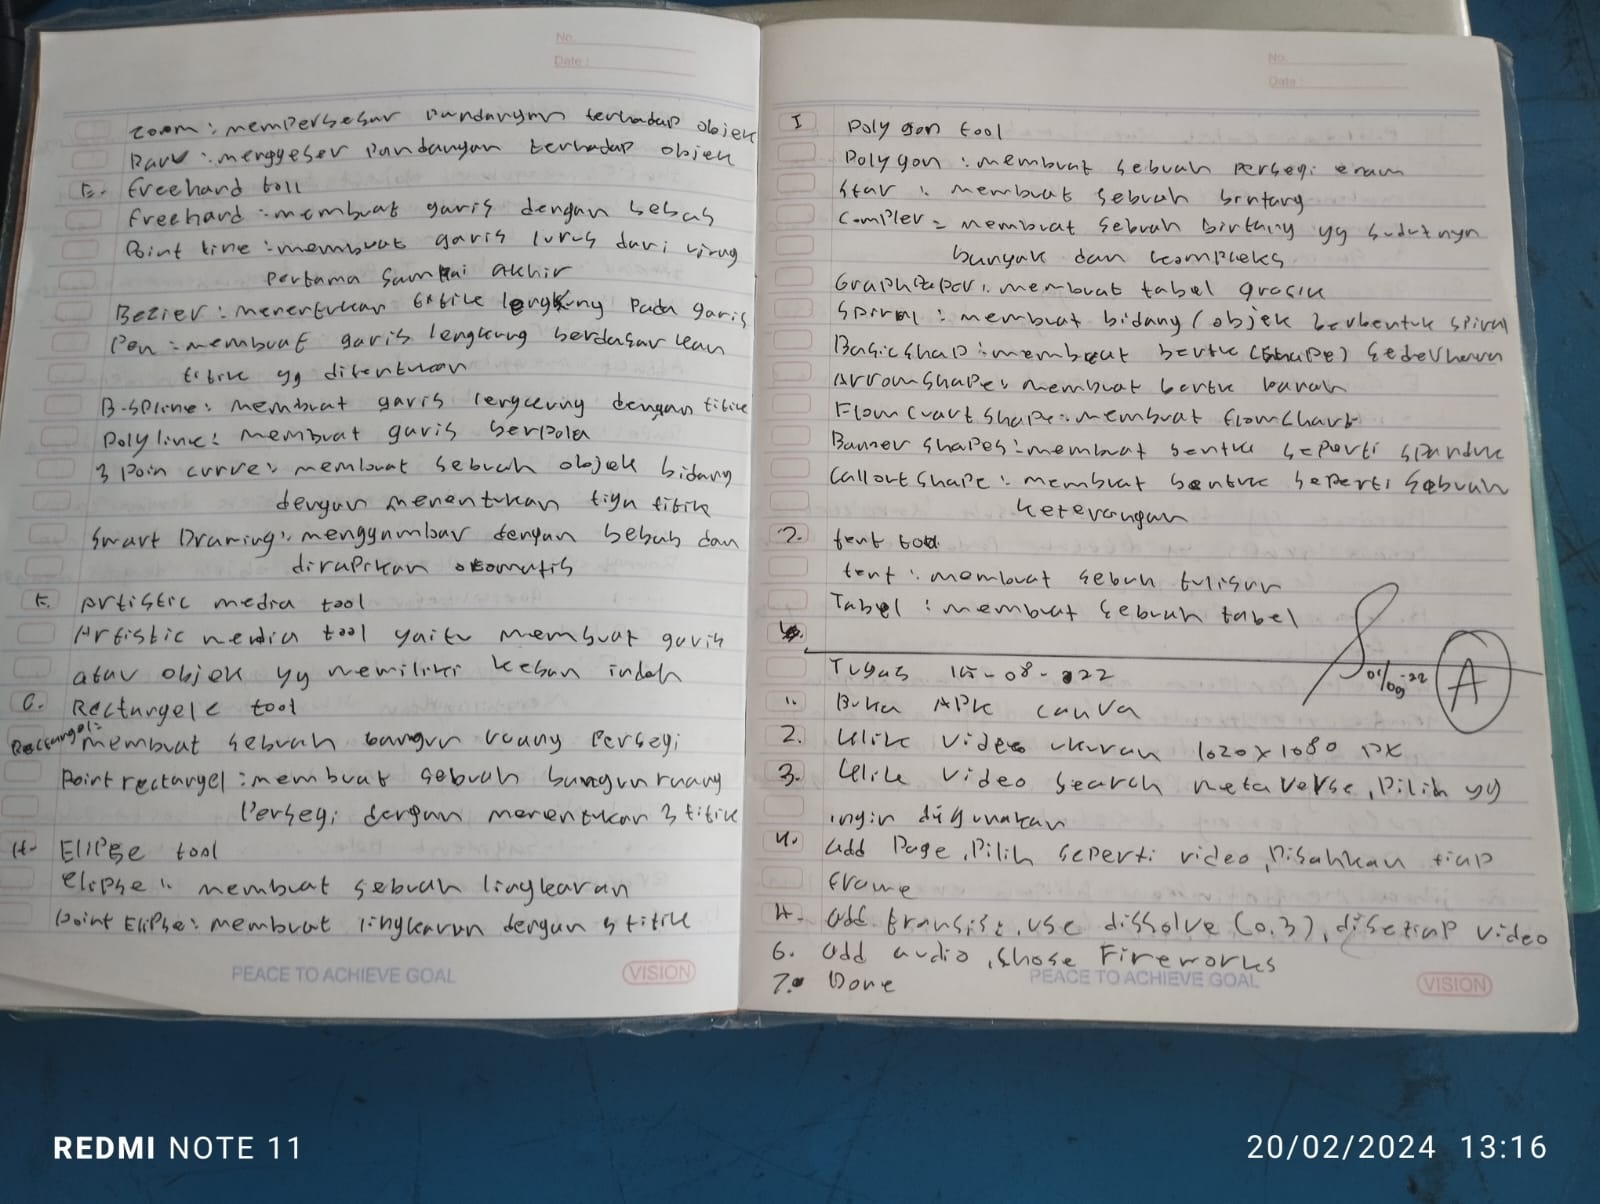 No.
Date :
zoom : mempersebar pandangan terhadap objek
Pan : menggeser pandangan terhadap objek
E. freehand toll
freehand : membuat garis dengan bebas
Point line : membuat garis lurus dari ujung
pertama sampai akhir
Bezier : menentukan titik lengkung pada garis
Pen : membuat garis lengkung berdasarkan
titik yg ditentukan
B-spline : membuat garis lengkung dengan titik
Poly line : membuat garis berpola
3 Poin curve : membuat sebuah objek bidang
dengan menentukan tiga titik
Smart Drawing : menggambar dengan bebas dan
dirapikan otomatis
F. Artistic media tool
Artistic media tool yaitu membuat garis
atau objek yg memiliki kesan indah
G. Rectangele tool
Rectangel : membuat sebuah bangun ruang persegi
Point rectangel : membuat sebuah bangun ruang
persegi dengan menentukan 3 titik
H. Elipse tool
Eliphe : membuat sebuah lingkaran
Point Eliphe : membuat lingkaran dengan 3 titik
PEACE TO ACHIEVE GOAL VISION
No.
Date :
I Polygon tool
Polygon : membuat sebuah persegi enam
Star : membuat sebuah bintang
Complex = membuat sebuah bintang yg sudutnya
banyak dan kompleks
Graph Paper : membuat tabel grafik
Spiral : membuat bidang / objek berbentuk spiral
Basic shap : membuat bentuk (shape) sederhana
Arrow shape : membuat bentuk panah
Flow cvart shape : membuat flowchart
Banner shapes : membuat bentuk seperti spanduk
Callout shape : membuat bentuk seperti sebuah
keterangan
J. text tool
text : membuat sebuh tulisan
Tabel : membuat sebuah tabel
Tugas 15-08-22
01/09-22 A
1. Buka APK canva
2. klik video ukuran 1020x1080 px
3. klik video search metaverse, pilih yg
ingin digunakan
4. add page, pilih seperti video, pisahkan tiap
frame
add transisi, use dissolve (0,3), disetiap video
6. add audio, shose Fireworks
7. Done
PEACE TO ACHIEVE GOAL VISION
REDMI NOTE 11
20/02/2024 13:16